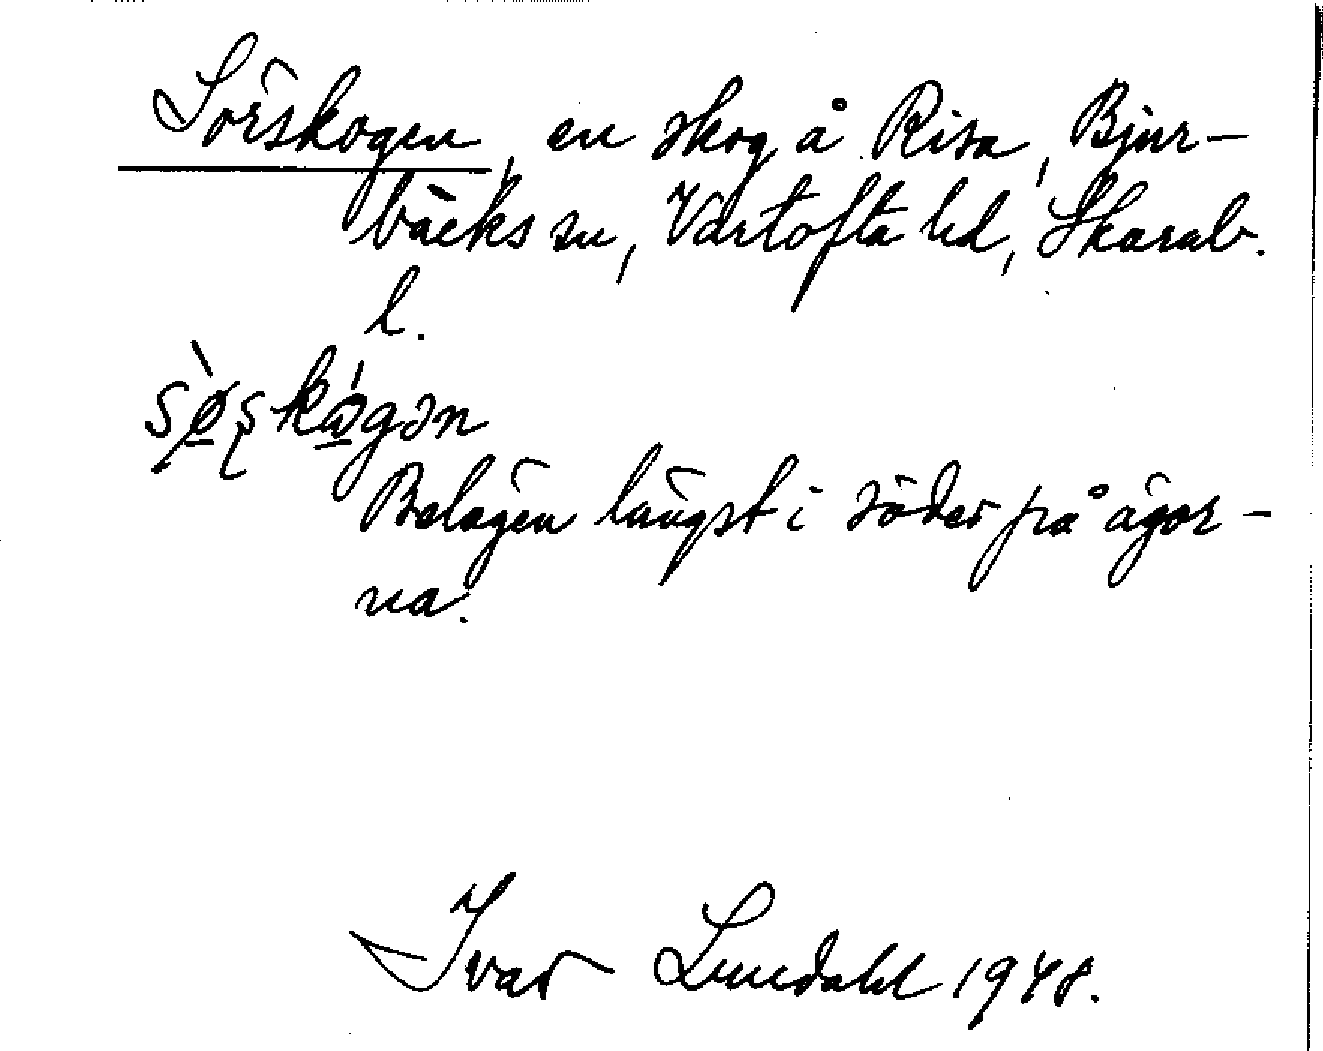 Sörskogen, en skog å Risa, Bjur-
bäcks sn, Vartofta hd, Skarab.
l.
sø̀ʂkó̱gən
Belägen längst i söder på ägor-
na.
Ivar Lundahl 1948.